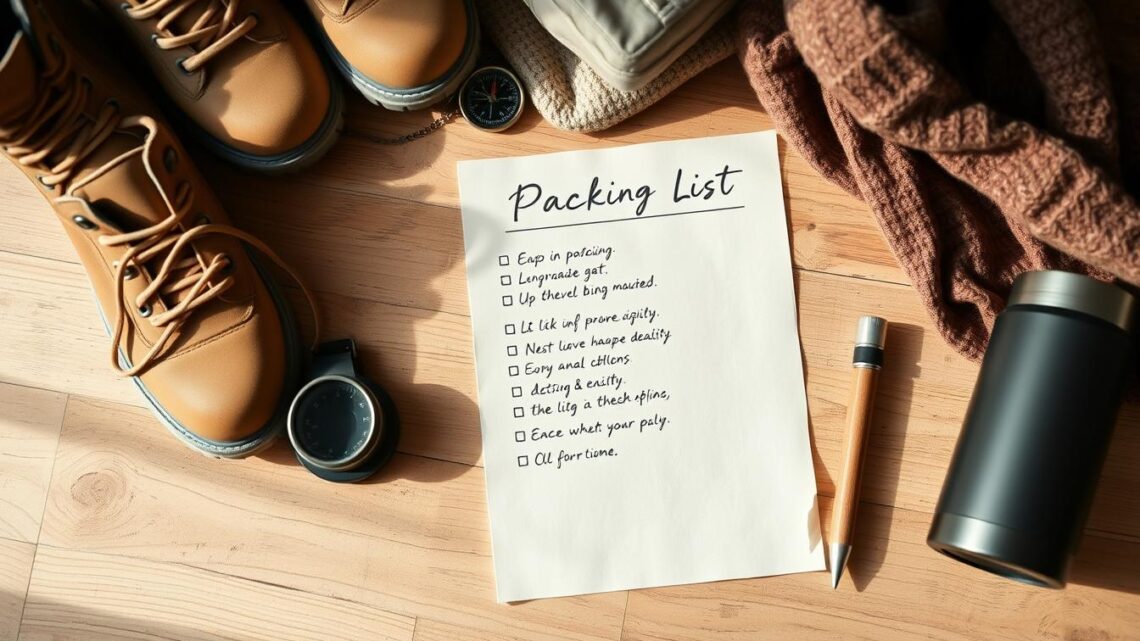 Packing List
Eap in paciing.
Lengraade gat.
Up thevel bing mauted.
Lt lik inf prowre agiity.
Nest lauve haape deality
Eory anal ctllcns
detsig & enlity.
the litg a theck
Eace whet your paly.
Oll forr tione.